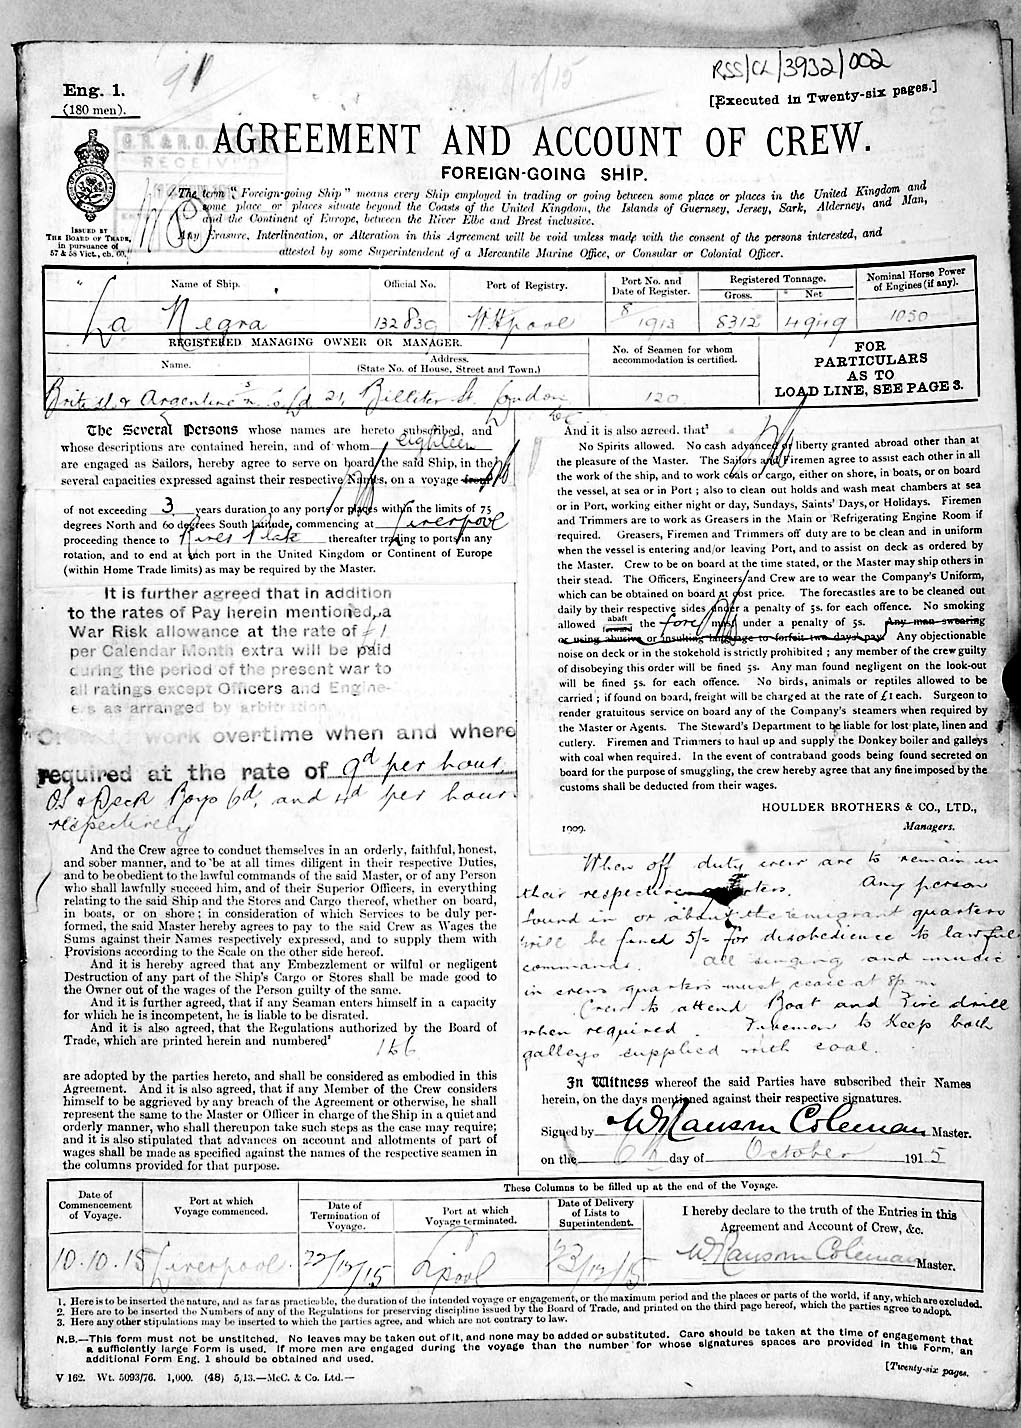 RSS/CL/3932/002
Eng. 1.
(180 men).
[Executed in Twenty-six pages.]
AGREEMENT AND ACCOUNT OF CREW.
FOREIGN-GOING SHIP.
The term "Foreign-going Ship" means every Ship employed in trading or going between some place or places in the United Kingdom and
some place or places situate beyond the Coasts of the United Kingdom, the Islands of Guernsey, Jersey, Sark, Alderney, and Man,
and the Continent of Europe, between the River Elbe and Brest inclusive.
Any Erasure, Interlineation, or Alteration in this Agreement will be void unless made with the consent of the persons interested, and
attested by some Superintendent of a Mercantile Marine Office, or Consular or Colonial Officer.
ISSUED BY
THE BOARD OF TRADE,
in pursuance of
57 & 58 Vict., ch. 60.
Name of Ship. Official No. Port of Registry. Port No. and Date of Register. Registered Tonnage. Gross. Net Nominal Horse Power of Engines (if any).
La Negra 132839 W. Hpool 8 1913 8312 4949 1050
REGISTERED MANAGING OWNER OR MANAGER.
Name. Address. (State No. of House, Street and Town.) No. of Seamen for whom accommodation is certified. FOR PARTICULARS AS TO LOAD LINE, SEE PAGE 3.
British & Argentine S. N. Co Ld 21, Billiter St. London 120
The Several Persons whose names are hereto subscribed, and
whose descriptions are contained herein, and of whom eighteen
are engaged as Sailors, hereby agree to serve on board the said Ship, in the
several capacities expressed against their respective Names, on a voyage from
of not exceeding 3 years duration to any ports or places within the limits of 75
degrees North and 60 degrees South latitude, commencing at Liverpool
proceeding thence to River Plate thereafter trading to ports in any
rotation, and to end at such port in the United Kingdom or Continent of Europe
(within Home Trade limits) as may be required by the Master.
It is further agreed that in addition
to the rates of Pay herein mentioned, a
War Risk allowance at the rate of £1
per Calendar Month extra will be paid
during the period of the present war to
all ratings except Officers and Engine-
ers as arranged by arbitration
work overtime when and where
required at the rate of 9d per hour.
O.S & Deck Boys 6d, and 4d per hour
respectively
And the Crew agree to conduct themselves in an orderly, faithful, honest,
and sober manner, and to be at all times diligent in their respective Duties,
and to be obedient to the lawful commands of the said Master, or of any Person
who shall lawfully succeed him, and of their Superior Officers, in everything
relating to the said Ship and the Stores and Cargo thereof, whether on board,
in boats, or on shore; in consideration of which Services to be duly per-
formed, the said Master hereby agrees to pay to the said Crew as Wages the
Sums against their Names respectively expressed, and to supply them with
Provisions according to the Scale on the other side hereof.
And it is hereby agreed that any Embezzlement or wilful or negligent
Destruction of any part of the Ship's Cargo or Stores shall be made good to
the Owner out of the wages of the Person guilty of the same.
And it is further agreed, that if any Seaman enters himself in a capacity
for which he is incompetent, he is liable to be disrated.
And it is also agreed, that the Regulations authorized by the Board of
Trade, which are printed herein and numbered²
1 to 6
are adopted by the parties hereto, and shall be considered as embodied in this
Agreement. And it is also agreed, that if any Member of the Crew considers
himself to be aggrieved by any breach of the Agreement or otherwise, he shall
represent the same to the Master or Officer in charge of the Ship in a quiet and
orderly manner, who shall thereupon take such steps as the case may require;
and it is also stipulated that advances on account and allotments of part of
wages shall be made as specified against the names of the respective seamen in
the columns provided for that purpose.
And it is also agreed, that³
No Spirits allowed. No cash advanced or liberty granted abroad other than at
the pleasure of the Master. The Sailors and Firemen agree to assist each other in all
the work of the ship, and to work coals or cargo, either on shore, in boats, or on board
the vessel, at sea or in Port; also to clean out holds and wash meat chambers at sea
or in Port, working either night or day, Sundays, Saints' Days, or Holidays. Firemen
and Trimmers are to work as Greasers in the Main or Refrigerating Engine Room if
required. Greasers, Firemen and Trimmers off duty are to be clean and in uniform
when the vessel is entering and/or leaving Port, and to assist on deck as ordered by
the Master. Crew to be on board at the time stated, or the Master may ship others in
their stead. The Officers, Engineers and Crew are to wear the Company's Uniform,
which can be obtained on board at cost price. The forecastles are to be cleaned out
daily by their respective sides under a penalty of 5s. for each offence. No smoking
allowed abaft forward the fore mast under a penalty of 5s. Any man swearing
or using abusive or insulting language to forfeit two days pay. Any objectionable
noise on deck or in the stokehold is strictly prohibited; any member of the crew guilty
of disobeying this order will be fined 5s. Any man found negligent on the look-out
will be fined 5s. for each offence. No birds, animals or reptiles allowed to be
carried; if found on board, freight will be charged at the rate of £1 each. Surgeon to
render gratuitous service on board any of the Company's steamers when required by
the Master or Agents. The Steward's Department to be liable for lost plate, linen and
cutlery. Firemen and Trimmers to haul up and supply the Donkey boiler and galleys
with coal when required. In the event of contraband goods being found secreted on
board for the purpose of smuggling, the crew hereby agree that any fine imposed by the
customs shall be deducted from their wages.
HOULDER BROTHERS & CO., LTD.,
1909. Managers.
When off duty crew are to remain in
their respective quarters. Any person
found in or about the emigrant quarters
will be fined 5/- for disobedience to lawful
commands. All singing and music
in crews quarters must cease at 8 p.m
Crew to attend Boat and Fire drill
when required. Firemen to keep both
galleys supplied with coal.
In Witness whereof the said Parties have subscribed their Names
herein, on the days mentioned against their respective signatures.
Signed by W Ransom Coleman Master.
on the 6th day of October 1915
These Columns to be filled up at the end of the Voyage.
Date of Commencement of Voyage. Port at which Voyage commenced. Date of Termination of Voyage. Port at which Voyage terminated. Date of Delivery of Lists to Superintendent. I hereby declare to the truth of the Entries in this Agreement and Account of Crew, &c.
10.10.15 Liverpool. 22/12/15 L'pool 23/12/15 W. Ransom Coleman Master.
1. Here is to be inserted the nature, and as far as practicable, the duration of the intended voyage or engagement, or the maximum period and the places or parts of the world, if any, which are excluded.
2. Here are to be inserted the Numbers of any of the Regulations for preserving discipline issued by the Board of Trade, and printed on the third page hereof, which the parties agree to adopt.
3. Here any other stipulations may be inserted to which the parties agree, and which are not contrary to law.
N.B.—This form must not be unstitched. No leaves may be taken out of it, and none may be added or substituted. Care should be taken at the time of engagement that
a sufficiently large Form is used. If more men are engaged during the voyage than the number for whose signatures spaces are provided in this Form, an
additional Form Eng. 1 should be obtained and used.
[Twenty-six pages.
V 162. Wt. 5093/76. 1,000. (48) 5,13.—McC. & Co. Ltd.—